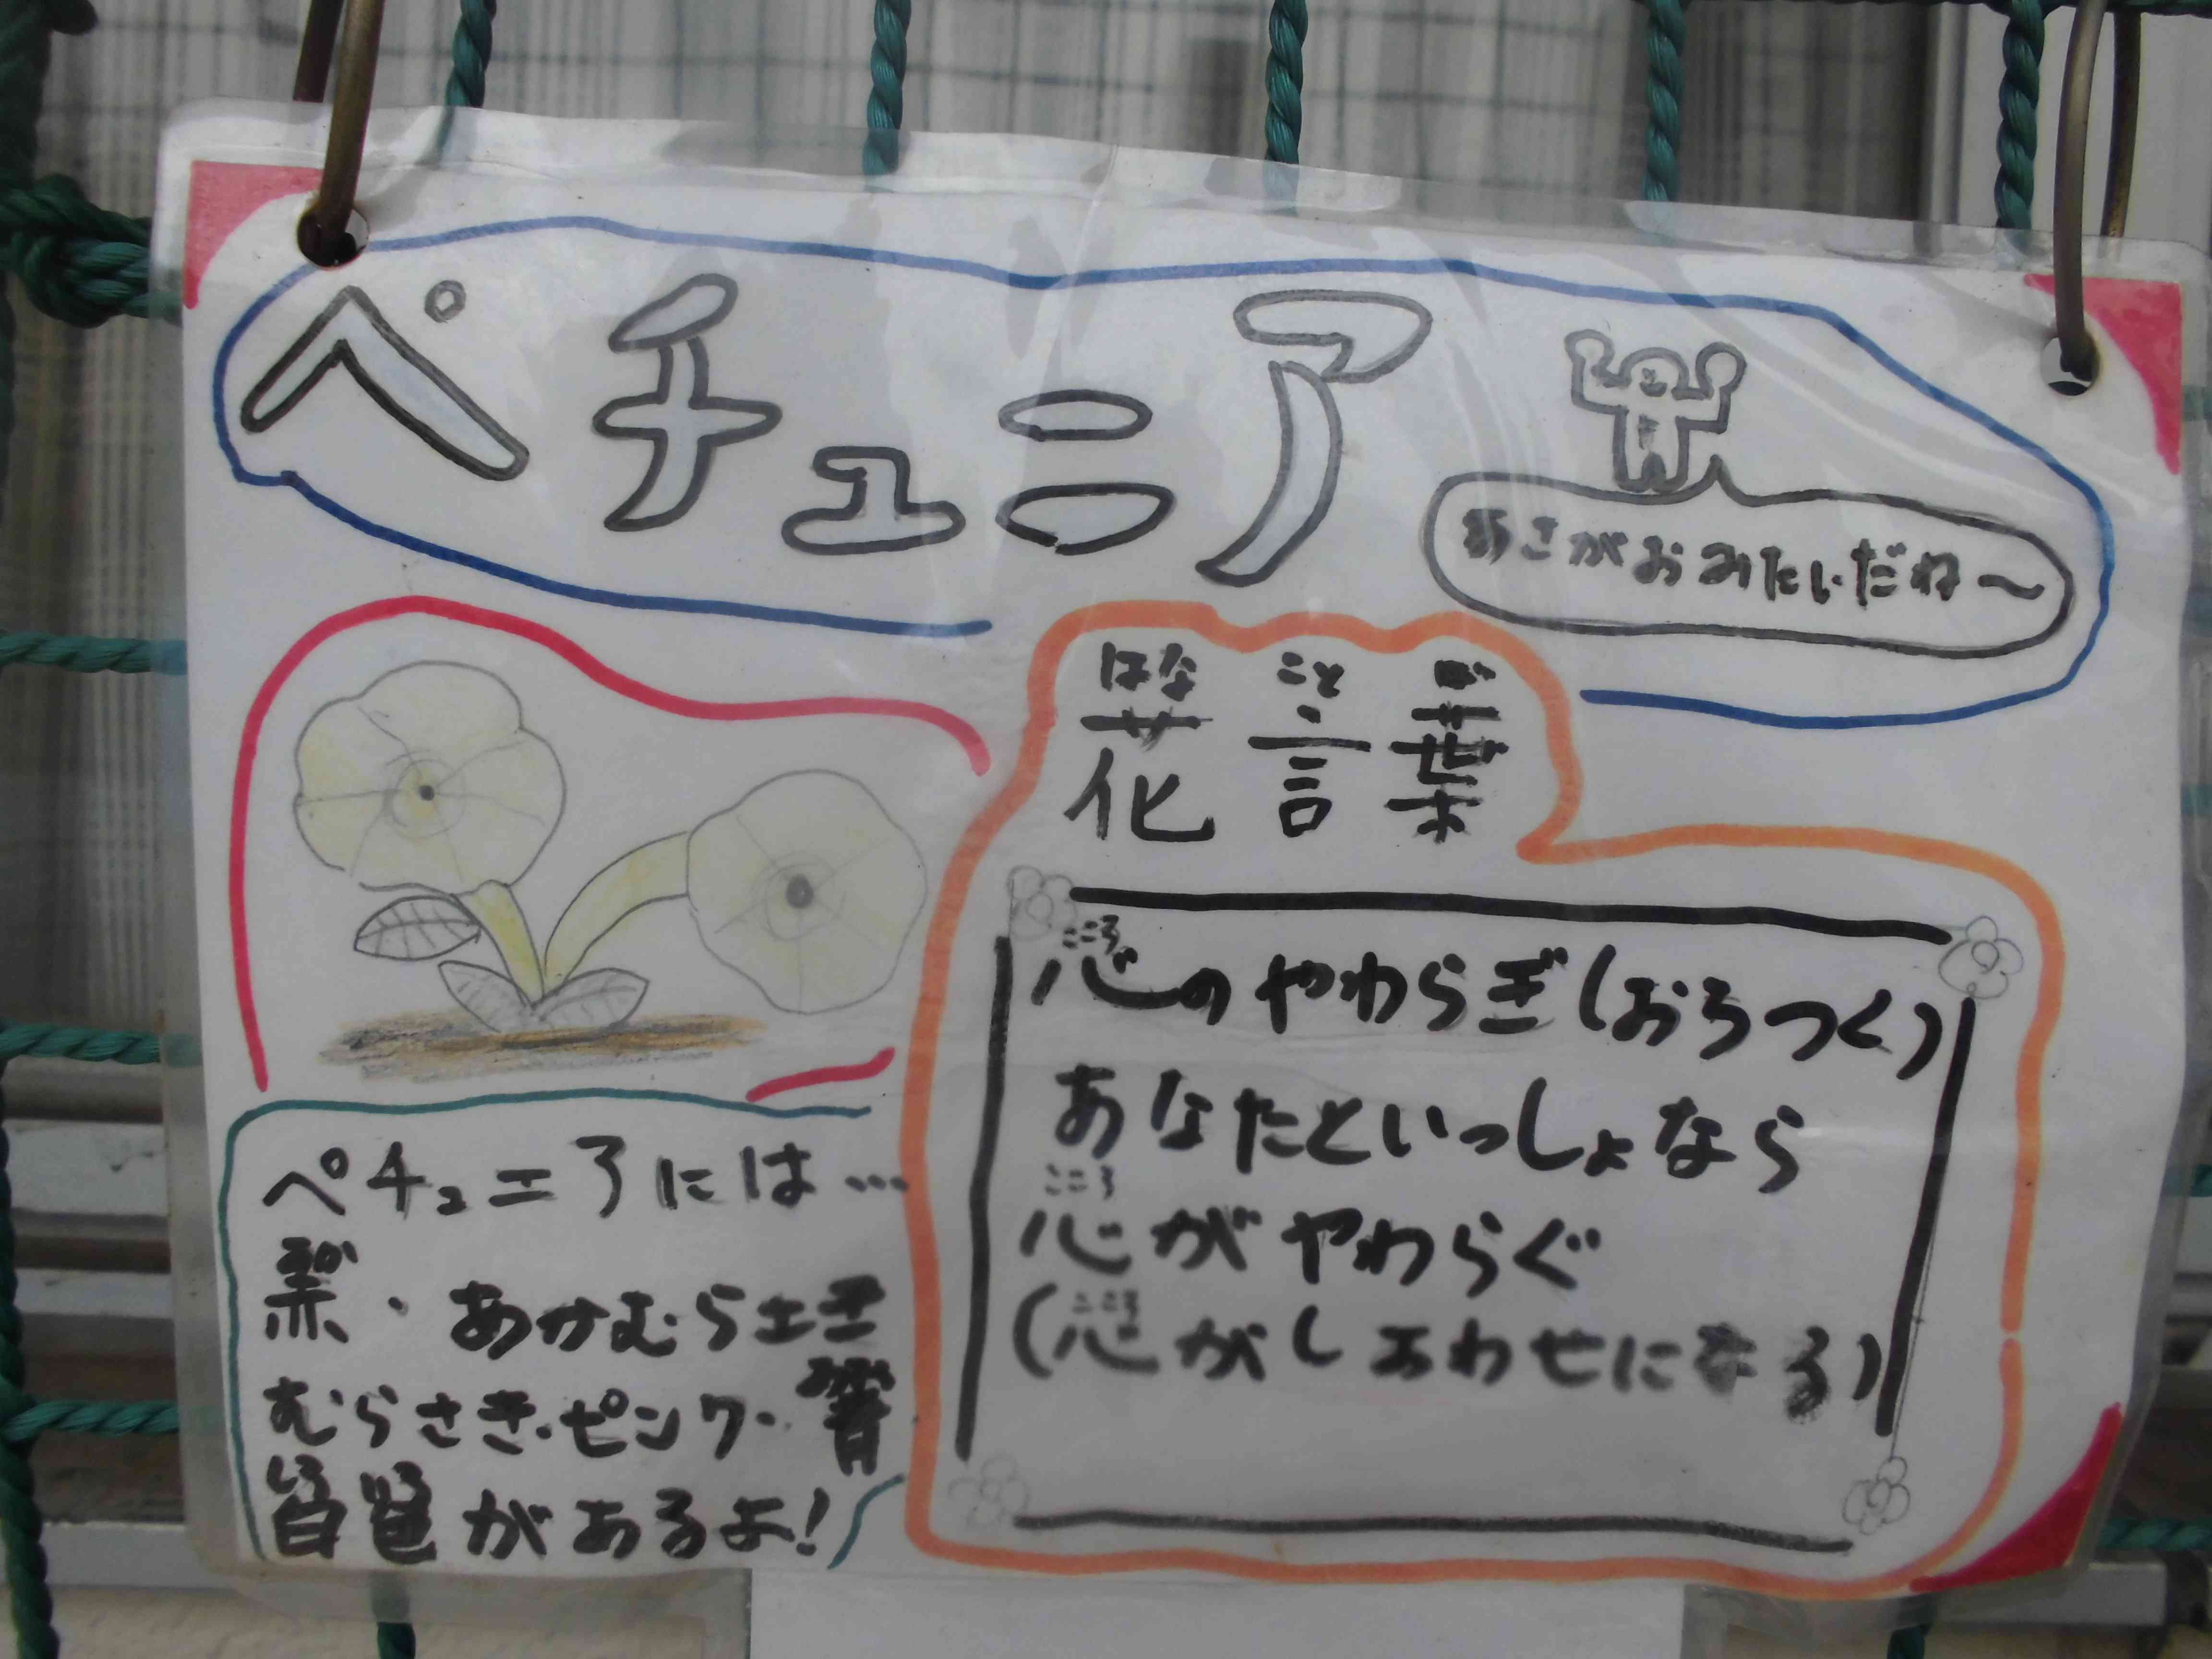 ペチュニア
あさがおみたいだね〜
はな こと ば
花言葉
こころ
心のやわらぎ(おちつく)
あなたといっしょなら
こころ
心がやわらぐ
こころ
(心がしあわせになる)
ペチュニアには…
あか
赤・あかむらさき
むらさき・ピンク・青
しろ いろ
白色があるよ!